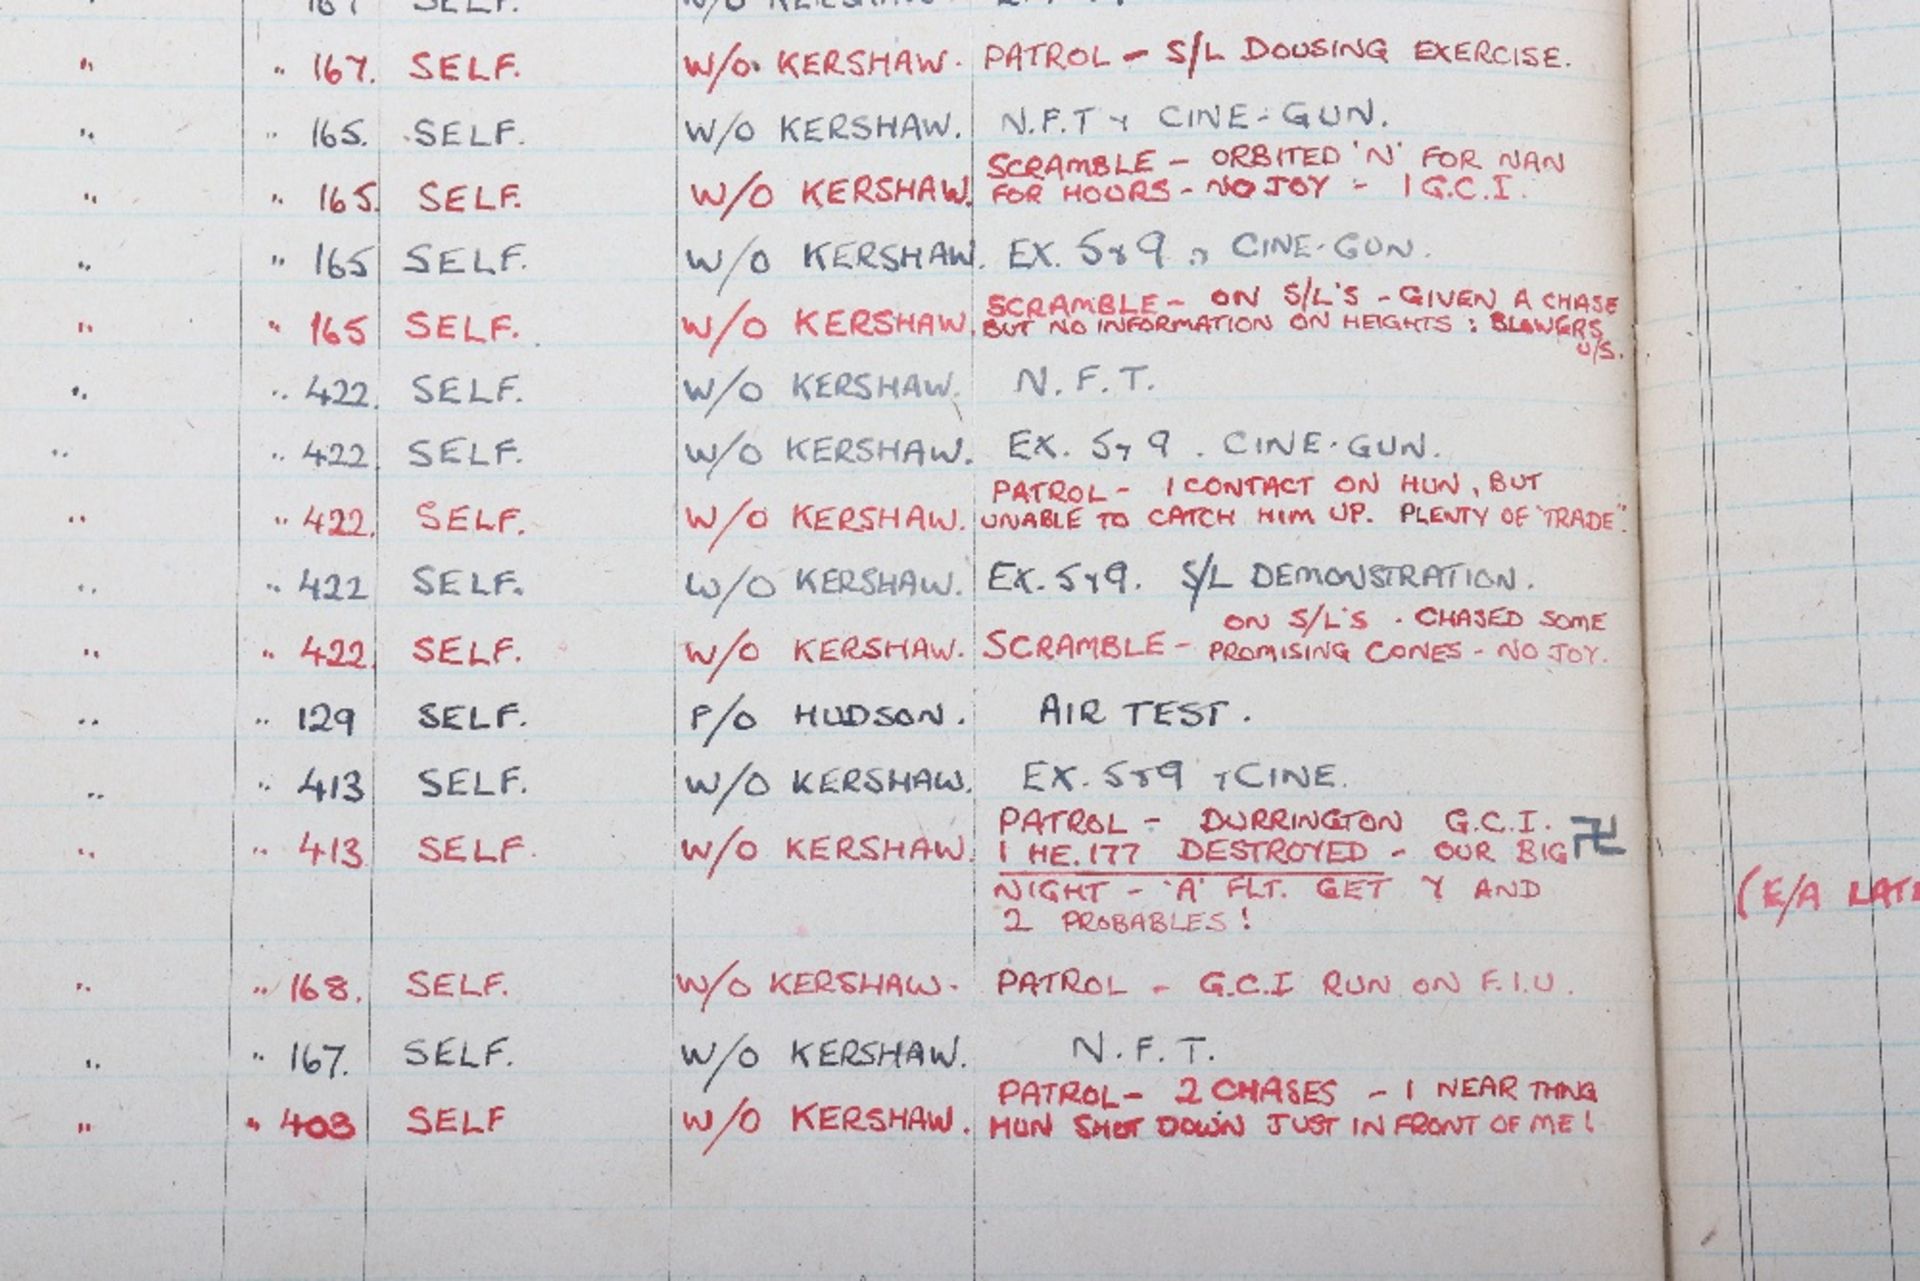 " " 167. SELF. W/O. KERSHAW. PATROL - S/L DOUSING EXERCISE.
" " 165. SELF. W/O KERSHAW. N.F.T & CINE-GUN.
SCRAMBLE - ORBITED 'N' FOR NAN
" " 165. SELF. W/O KERSHAW. FOR HOURS - NO JOY - 1 G.C.I.
" " 165 SELF. W/O KERSHAW. EX. 5&9 CINE-GUN.
SCRAMBLE - ON S/L'S - GIVEN A CHASE
" " 165 SELF. W/O KERSHAW. BUT NO INFORMATION ON HEIGHTS : BLOWERS
U/S.
" " 422. SELF. W/O KERSHAW. N.F.T.
" " 422. SELF. W/O KERSHAW. EX. 5&9. CINE-GUN.
PATROL - 1 CONTACT ON HUN, BUT
" " 422. SELF. W/O KERSHAW. UNABLE TO CATCH HIM UP. PLENTY OF "TRADE".
" " 422 SELF. W/O KERSHAW. EX. 5&9. S/L DEMONSTRATION.
ON S/L'S. CHASED SOME
" " 422. SELF. W/O KERSHAW. SCRAMBLE - PROMISING CONES - NO JOY.
" " 129 SELF. F/O HUDSON. AIR TEST.
" " 413 SELF. W/O KERSHAW. EX. 5&9 & CINE.
PATROL - DURRINGTON G.C.I.
" " 413 SELF. W/O KERSHAW. 1 HE.177 DESTROYED - OUR BIG 卍
NIGHT - 'A' FLT. GET Y AND
2 PROBABLES!
(E/A LATE
" " 168. SELF. W/O KERSHAW. PATROL - G.C.I RUN ON F.I.U.
" " 167. SELF. W/O KERSHAW. N.F.T.
PATROL - 2 CHASES - 1 NEAR THING
" " 403 SELF W/O KERSHAW. HUN SHOT DOWN JUST IN FRONT OF ME!